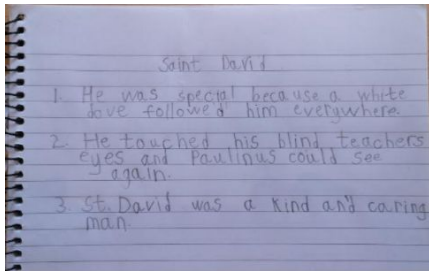 Saint David
1. He was special because a white
dove followed him everywhere.
2. He touched his blind teachers
eyes and Paulinus could see
again.
3 St. David was a kind and caring
man.